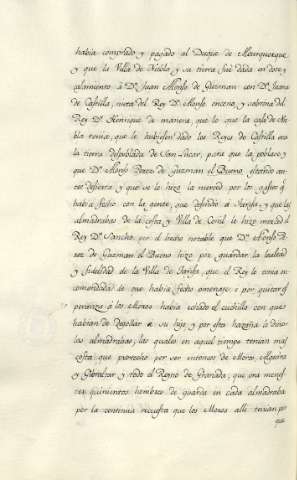 havia comprado y pagado al Duque de Alburquerque
y que la Villa de Niebla y su tierra fue dada en dote y
casamiento à Dn. Juan Alonso de Guzman con Dª. Juana
de Castilla, nieta del Rey Dn. Alonso onceno y sobrina del
Rey Dn. Henrique de manera, que lo que la casa de Nie
bla tenia, que le hubiesen dado los Reyes de Castilla era
la tierra despoblada de San Lucar, para que la poblase y
que Dn. Alonso Perez de Guzman el Bueno estando an
tes desierta y que se le hizo la merced por los gastos q
había fecho con la gente, que defendió à Tarifa, y que las
almadrabas de la costa y Villa de Conil le hizo merced el
Rey Dn. Sancho por el hecho notable que Dn. Alonso P
erez de Guzman el Bueno hizo por guardar la lealtad
y fidelidad de la Villa de Tarifa, que el Rey le tenia en
comendada de que había fecho omenage, è por quitar el
à los Moros havia echado el cuchillo con que
habian de degollar à su hijo, y por esta hazaña le dió
las almadrabas, las quales en aquel tiempo tenian mas
costa que provecho por ser entonces de Moros, Algecira
y Gibraltar y todo el Reyno de Granada, que era menes
ter quinientos hombres de guarda en cada almadraba
por la continua que los Moros alli tenian por
que